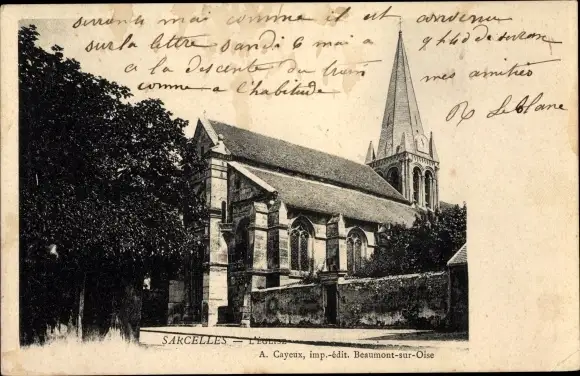 serrons mai comme il est convenu
sur la lettre samedi 6 mai a 9h40 de
a la descente du train mes amitiés
comme a l'habitude
R Leblanc
SARCELLES — L'ÉGLISE
A. Cayeux, imp.-édit. Beaumont-sur-Oise